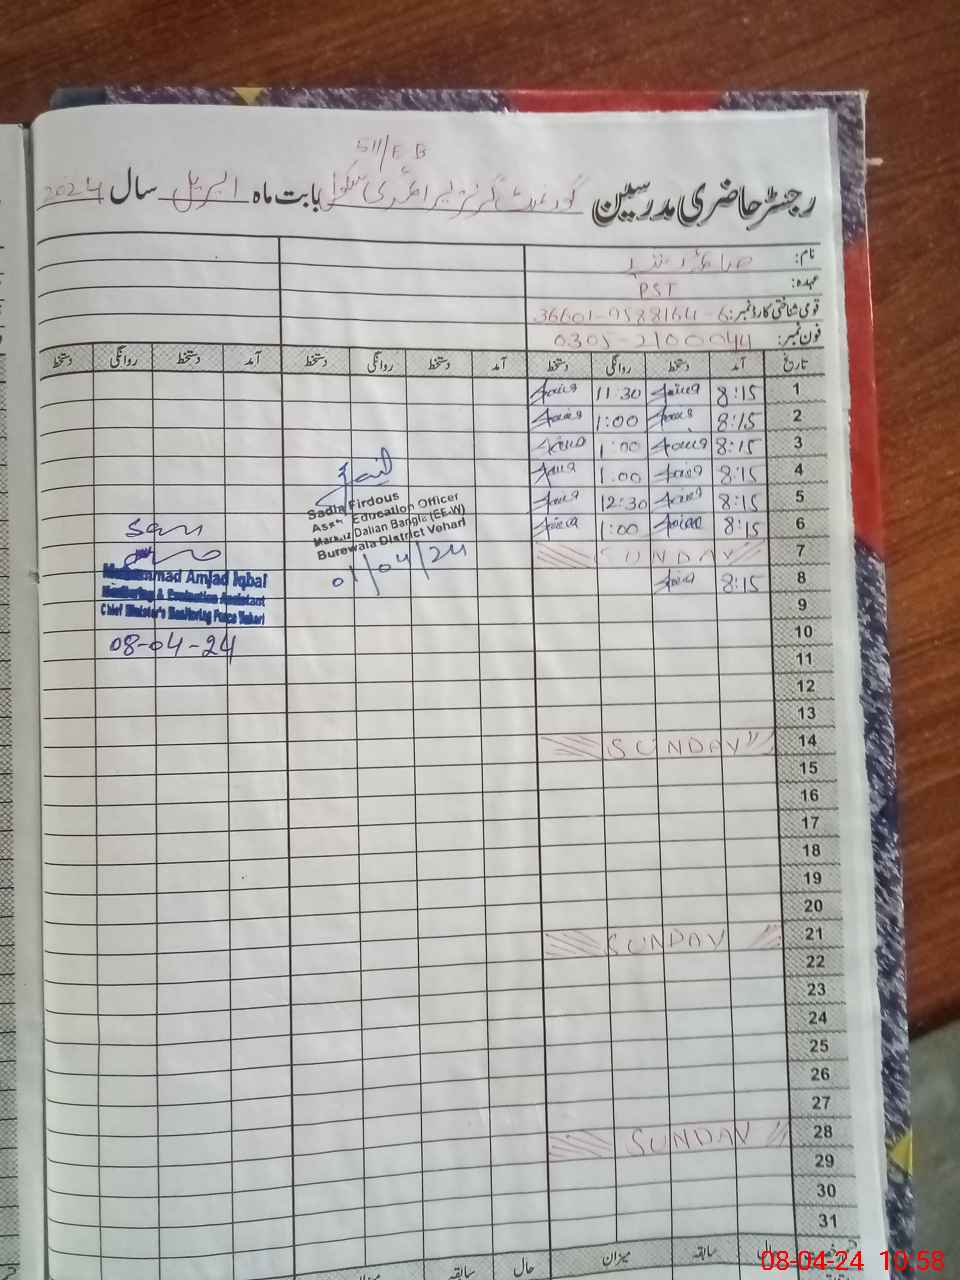 511/E B
رجسٹر حاضری مدرسین گورنمنٹ گرلز پرائمری سکول بابت ماہ اپریل سال 2024
نام:
عہدہ: PST
قومی شناختی کارڈ نمبر: 36601-0588164-6
فون نمبر: 0305-2100044
تاریخ آمد دستخط روانگی دستخط آمد دستخط روانگی دستخط آمد دستخط روانگی دستخط
1 8:15 11:30
2 8:15 1:00
3 8:15 1:00
4 8:15 1:00
5 8:15 12:30
6 8:15 1:00
7 SUNDAY
8 8:15
9
10
11
12
13
14 SUNDAY
15
16
17
18
19
20
21 SUNDAY
22
23
24
25
26
27
28 SUNDAY
29
30
31
Sadia Firdous
Asstt Education Officer
Markaz Dallan Bangla (EE-W)
Burewala District Vehari
01/04/24
Muhammad Amjad Iqbal
Monitoring & Evaluation Assistant
Chief Minister's Monitoring Force Vehari
08-04-24
سابقہ میزان حال سابقہ میزان
08-04-24 10:58